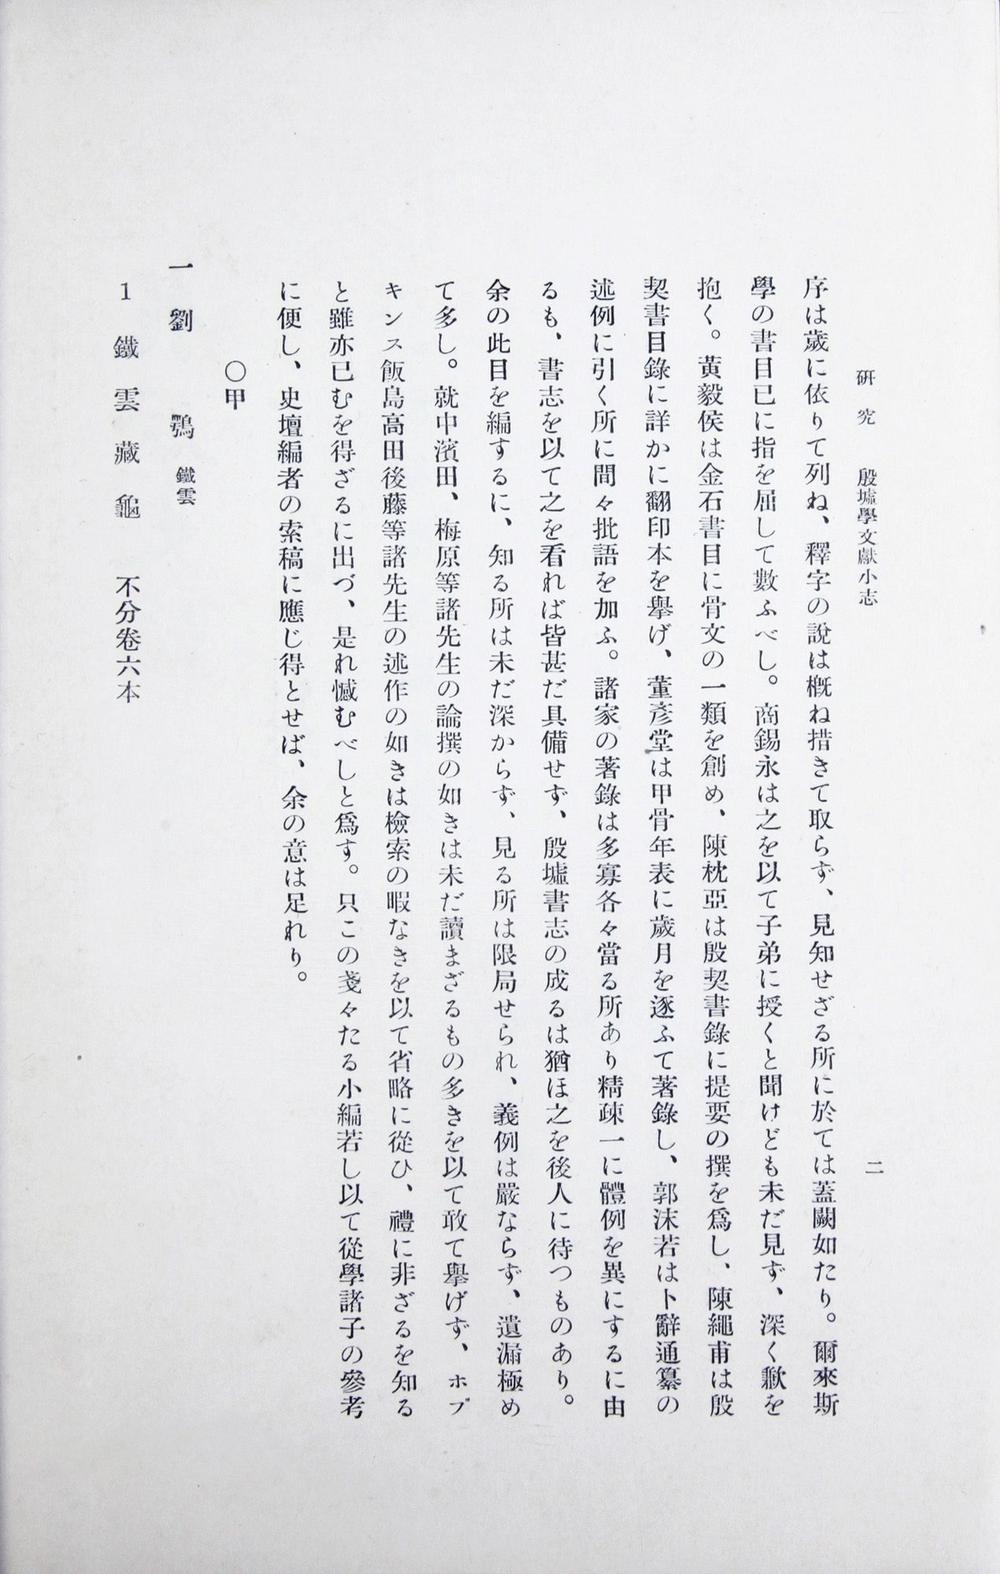 研究 殷墟學文獻小志 二
序は歲に依りて列ね、釋字の說は槪ね措きて取らず、見知せざる所に於ては蓋闕如たり。爾來斯
學の書目已に指を屈して數ふべし。商錫永は之を以て子弟に授くと聞けども未だ見ず、深く歉を
抱く。黃毅侯は金石書目に骨文の一類を創め、陳枕亞は殷契書錄に提要の撰を爲し、陳繩甫は殷
契書目錄に詳かに翻印本を擧げ、董彥堂は甲骨年表に歲月を逐ふて著錄し、郭沫若は卜辭通纂の
述例に引く所に間々批語を加ふ。諸家の著錄は多寡各々當る所あり精疎一に體例を異にするに由
るも、書志を以て之を看れば皆甚だ具備せず、殷墟書志の成るは猶ほ之を後人に待つものあり。
余の此目を編するに、知る所は未だ深からず、見る所は限局せられ、義例は嚴ならず、遺漏極め
て多し。就中濱田、梅原等諸先生の論撰の如きは未だ讀まざるもの多きを以て敢て擧げず、ホプ
キンス飯島高田後藤等諸先生の述作の如きは檢索の暇なきを以て省略に從ひ、禮に非ざるを知る
と雖亦已むを得ざるに出づ、是れ憾むべしと爲す。只この戔々たる小編若し以て從學諸子の參考
に便し、史壇編者の索稿に應じ得とせば、余の意は足れり。
〇甲
一 劉 鶚 鐵雲
1 鐵雲藏龜 不分卷六本